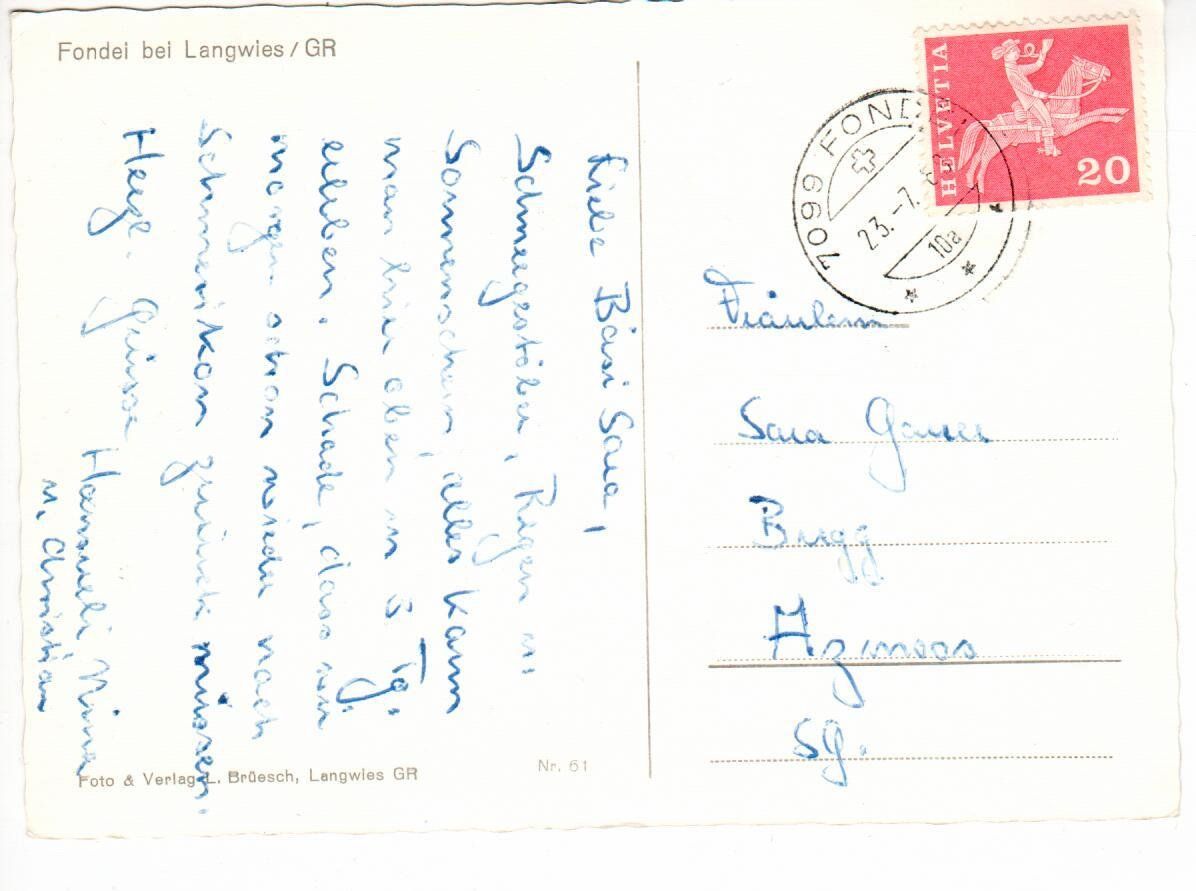 Fondei bei Langwies / GR
Liebe Bäsi Sara,
Schneegestöber, Regen u.
Sonnenschein, alles kann
man hier oben in 3 Tg.
erleben. Schade, dass wir
morgen schon wieder nach
Schmerikon zurück müssen.
Herzl. Grüsse Hansueli, Nina
u. Christian
Foto & Verlag L. Brüesch, Langwies GR
Nr. 61
HELVETIA
20
7099 FONDEI
23.-7.
10a
Fräulein
Sara Gauer
Brugg
Azmoos
SG.